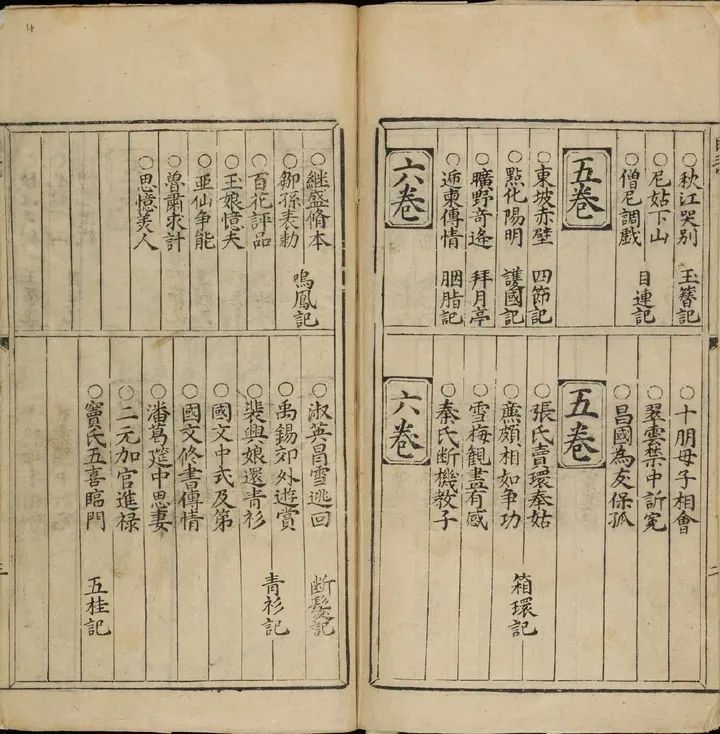 4
○秋江哭別 玉簪記
○尼姑下山
○僧尼調戲 目連記
五卷
○東坡赤壁 四節記
○點化陽明 護國記
○曠野竒逢 拜月亭
○遞柬傳情 胭脂記
六卷
○十朋母子相會
○翠雲禁中訴寃
○昌國為友保孤
五卷
○張氏賣環奉姑
○廉頗相如争功 箱環記
○雪梅觀畫有感
○秦氏断機教子
六卷
二
○继盛脩本 鳴鳳記
○鄒孫表勅
○百花評品
○玉娘憶夫
○亚仙争能
○魯肅求計
○思憶美人
○淑英冒雪逃回 断髮記
○禹錫郊外遊賞
○裴興娘還青衫 青衫記
○國文中式及第
○國文修書傳情
○潘葛筵中思妻
○二元加官進禄
○竇氏五喜臨門 五桂記
三